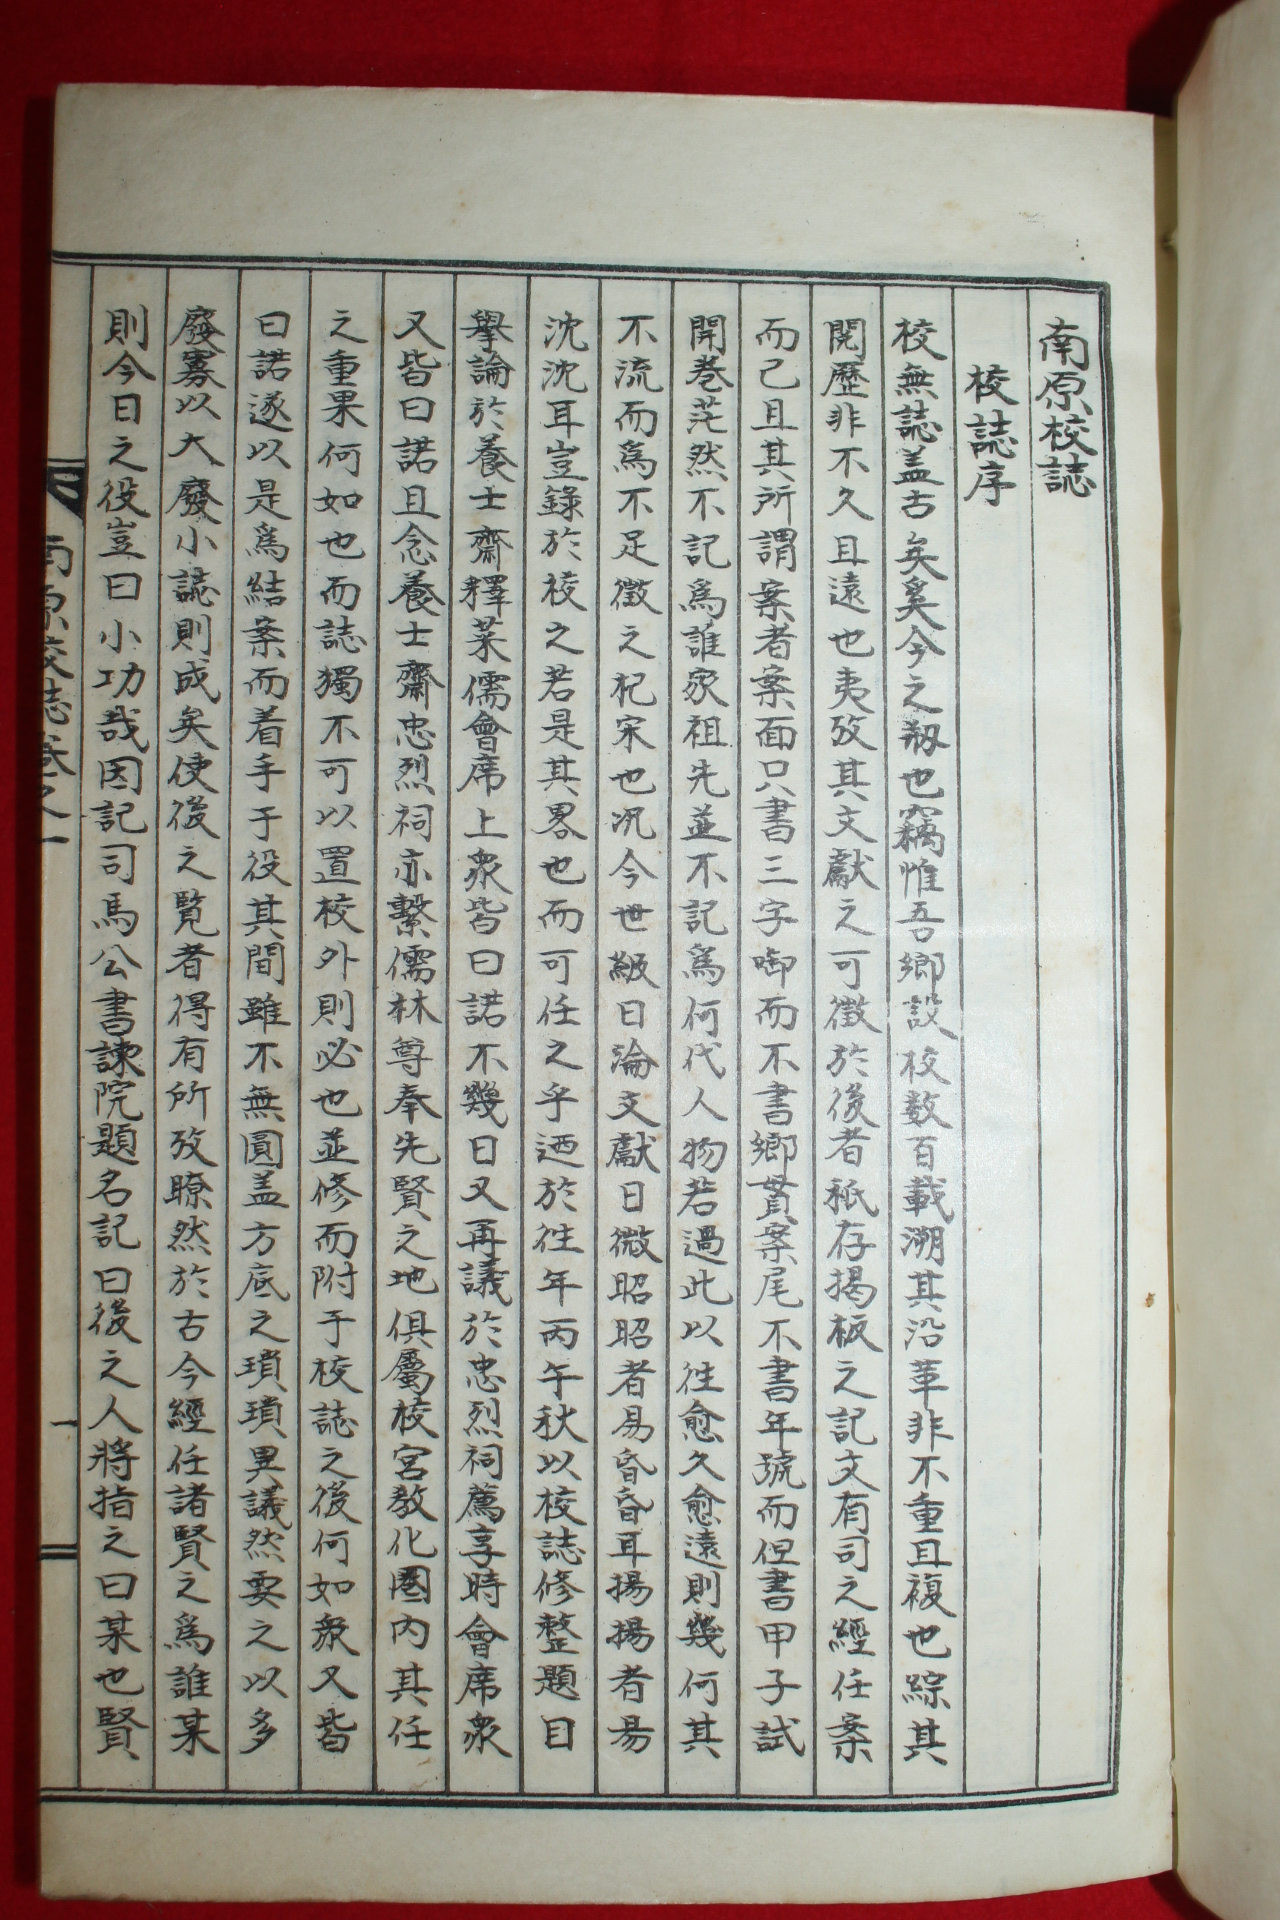 南原校誌
校誌序
校無誌盖古矣奚今之刱也竊惟吾鄉設校数百載溯其沿革非不重且複也綜其
閱歷非不久且遠也夷攷其文獻之可徵於後者秖存揭板之記文有司之經任案
而已且其所謂案者案面只書三字啣而不書鄉貫案尾不書年號而但書甲子試
開卷茫然不記爲誰家祖先並不記爲何代人物若過此以往愈久愈遠則幾何其
不流而爲不足徵之杞宋也况今世級日淪文獻日微昭昭者易昏昏耳揚揚者易
沈沈耳豈錄於校之若是其畧也而可任之乎迺於往年丙午秋以校誌修整題目
擧論於養士齋釋菜儒會席上衆皆曰諾不幾日又再議於忠烈祠薦享時會席衆
又皆曰諾且念養士齋忠烈祠亦繫儒林尊奉先賢之地俱屬校宮教化圈内其任
之重果何如也而誌獨不可以置校外則必也並修而附于校誌之後何如衆又皆
曰諾遂以是爲結案而着手于役其間雖不無圓盖方底之瑣瑣異議然要之以多
廢寡以大廢小誌則成矣使後之覽者得有所攷瞭然於古今經任諸賢之爲誰某
則今日之役豈曰小功哉因記司馬公書諫院題名記曰後之人將指之曰某也賢
南原校誌卷之一
一